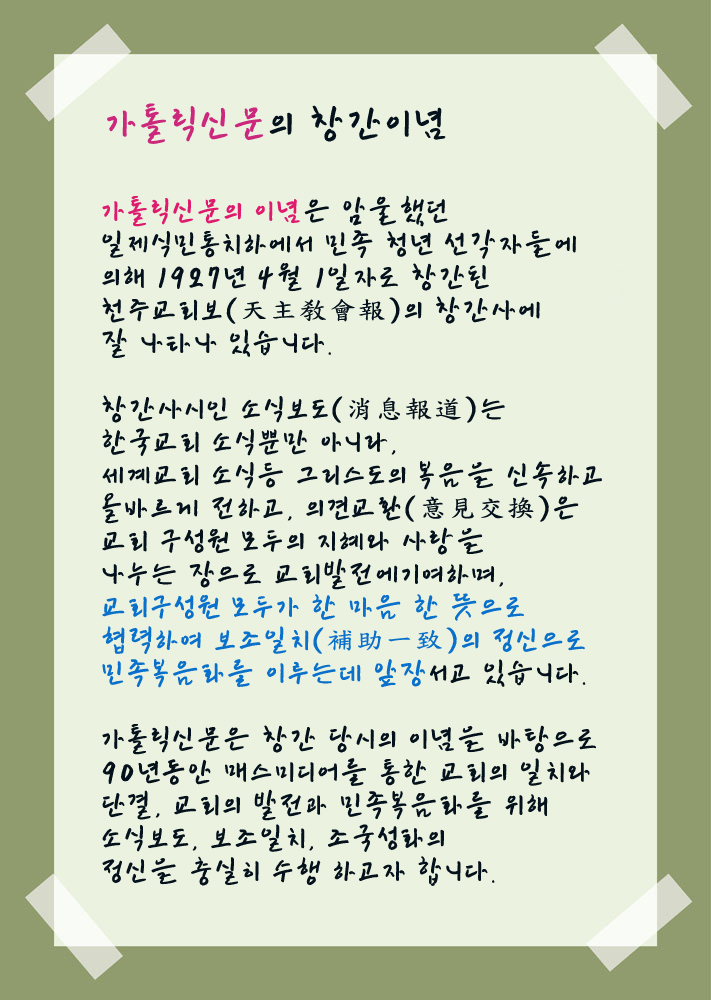 가톨릭신문의 창간이념
가톨릭신문의 이념은 암울했던
일제식민통치하에서 민족 청년 선각자들에
의해 1927년 4월 1일자로 창간된
천주교회보(天主敎會報)의 창간사에
잘 나타나 있습니다.
창간사시인 소식보도(消息報道)는
한국교회 소식뿐만 아니라,
세계교회 소식등 그리스도의 복음을 신속하고
올바르게 전하고, 의견교환(意見交換)은
교회 구성원 모두의 지혜와 사랑을
나누는 장으로 교회발전에기여하며,
교회구성원 모두가 한 마음 한 뜻으로
협력하여 보조일치(補助一致)의 정신으로
민족복음화를 이루는데 앞장서고 있습니다.
가톨릭신문은 창간 당시의 이념을 바탕으로
90년동안 매스미디어를 통한 교회의 일치와
단결, 교회의 발전과 민족복음화를 위해
소식보도, 보조일치, 조국성화의
정신을 충실히 수행 하고자 합니다.